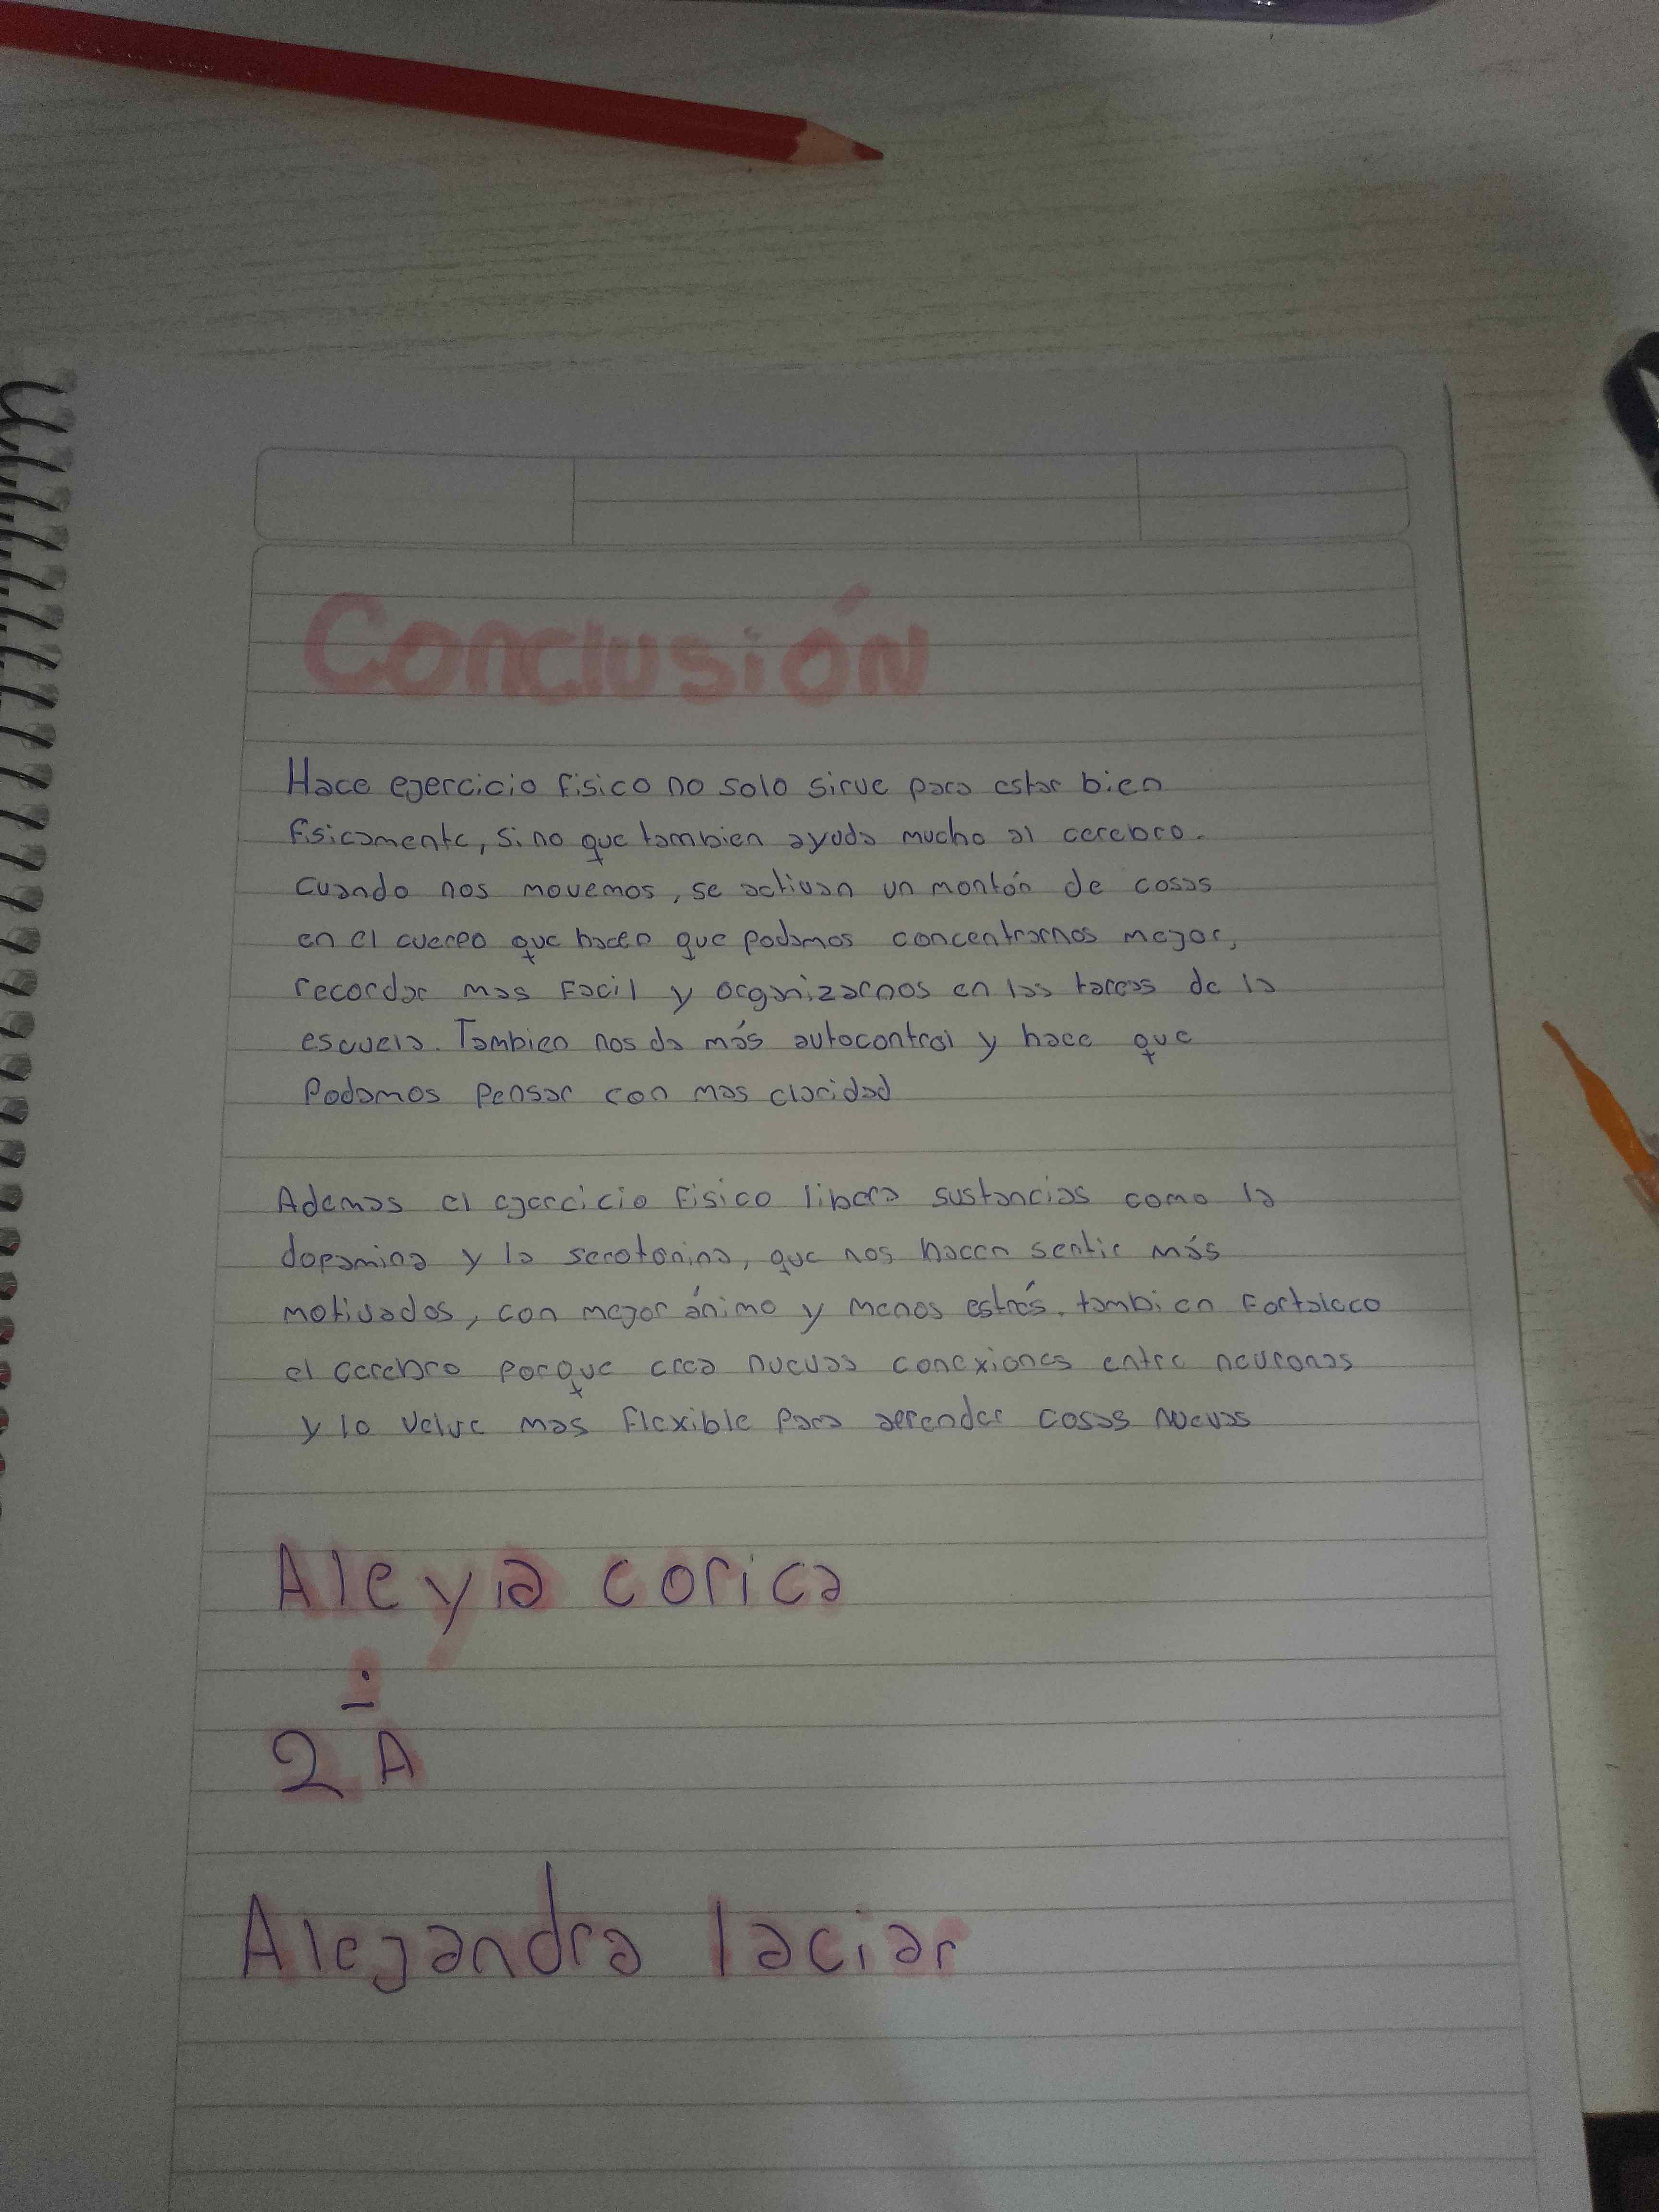 Conclusión
Hace ejercicio fisico no solo sirve para estar bien
fisicamente, si no que tambien ayuda mucho al cerebro.
cuando nos movemos, se activan un montón de cosas
en el cuerpo que hacen que podamos concentrarnos mejor,
recordar mas facil y organizarnos en las tareas de la
escuela. Tambien nos da más autocontrol y hace que
Podamos Pensar con mas claridad
Ademas el ejercicio fisico libera sustancias como la
dopamina y la serotonina, que nos hacen sentir más
motivados, con mejor ánimo y menos estrés. tambien Fortalece
el cerebro porque crea nuevas conexiones entre neuronas
y lo velve mas flexible para aprender cosas nuevas
Aleyia corica
2 A
Alejandra laciar